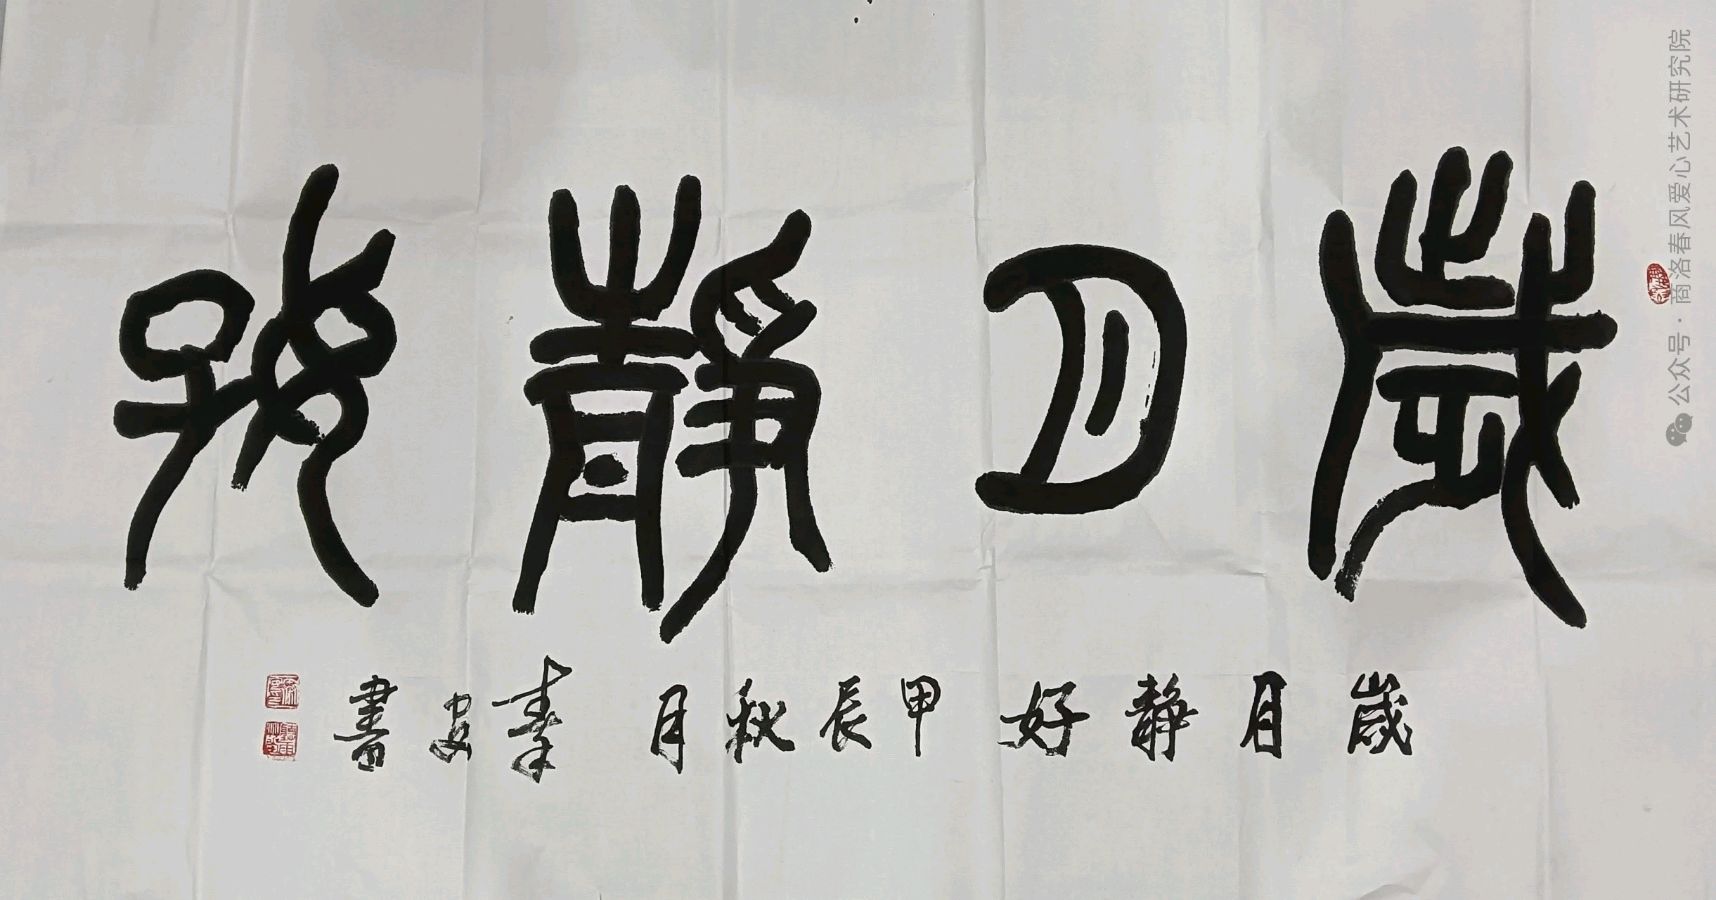 歲月靜好
歲月靜好 甲辰秋月 秦安書
公众号·商洛春风爱心艺术研究院